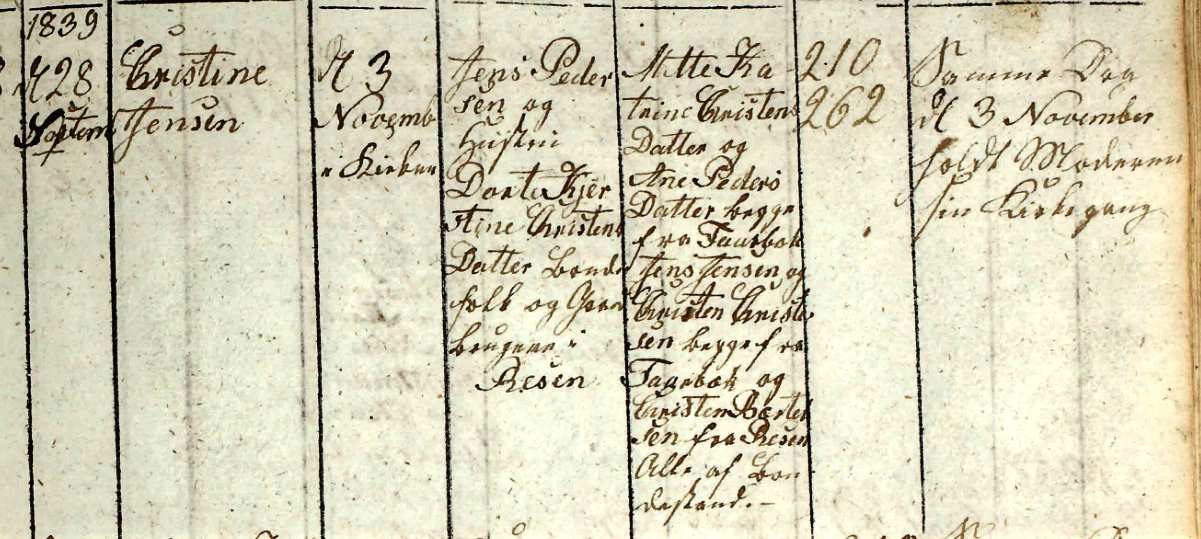 1839
d 28
Septem
Christine
Jensen
d 3
Novemb
i Kirken
Jens Peder
sen og
Hustru
Dorte Kjer
stine Christens
Datter Bonde
folk og Gaard
brugere i
Resen
Mette Ka
trine Christens
Datter og
Ane Peders
Datter begge
fra Faarbæk
Jens Jensen og
Christen Christe
sen begge fra
Faarbæk og
Christen Bertel
sen fra Resen
Alle af Bon
destand.-
210
262
Samme Dag
d 3 November
holdt Moderen
sin Kirkegang